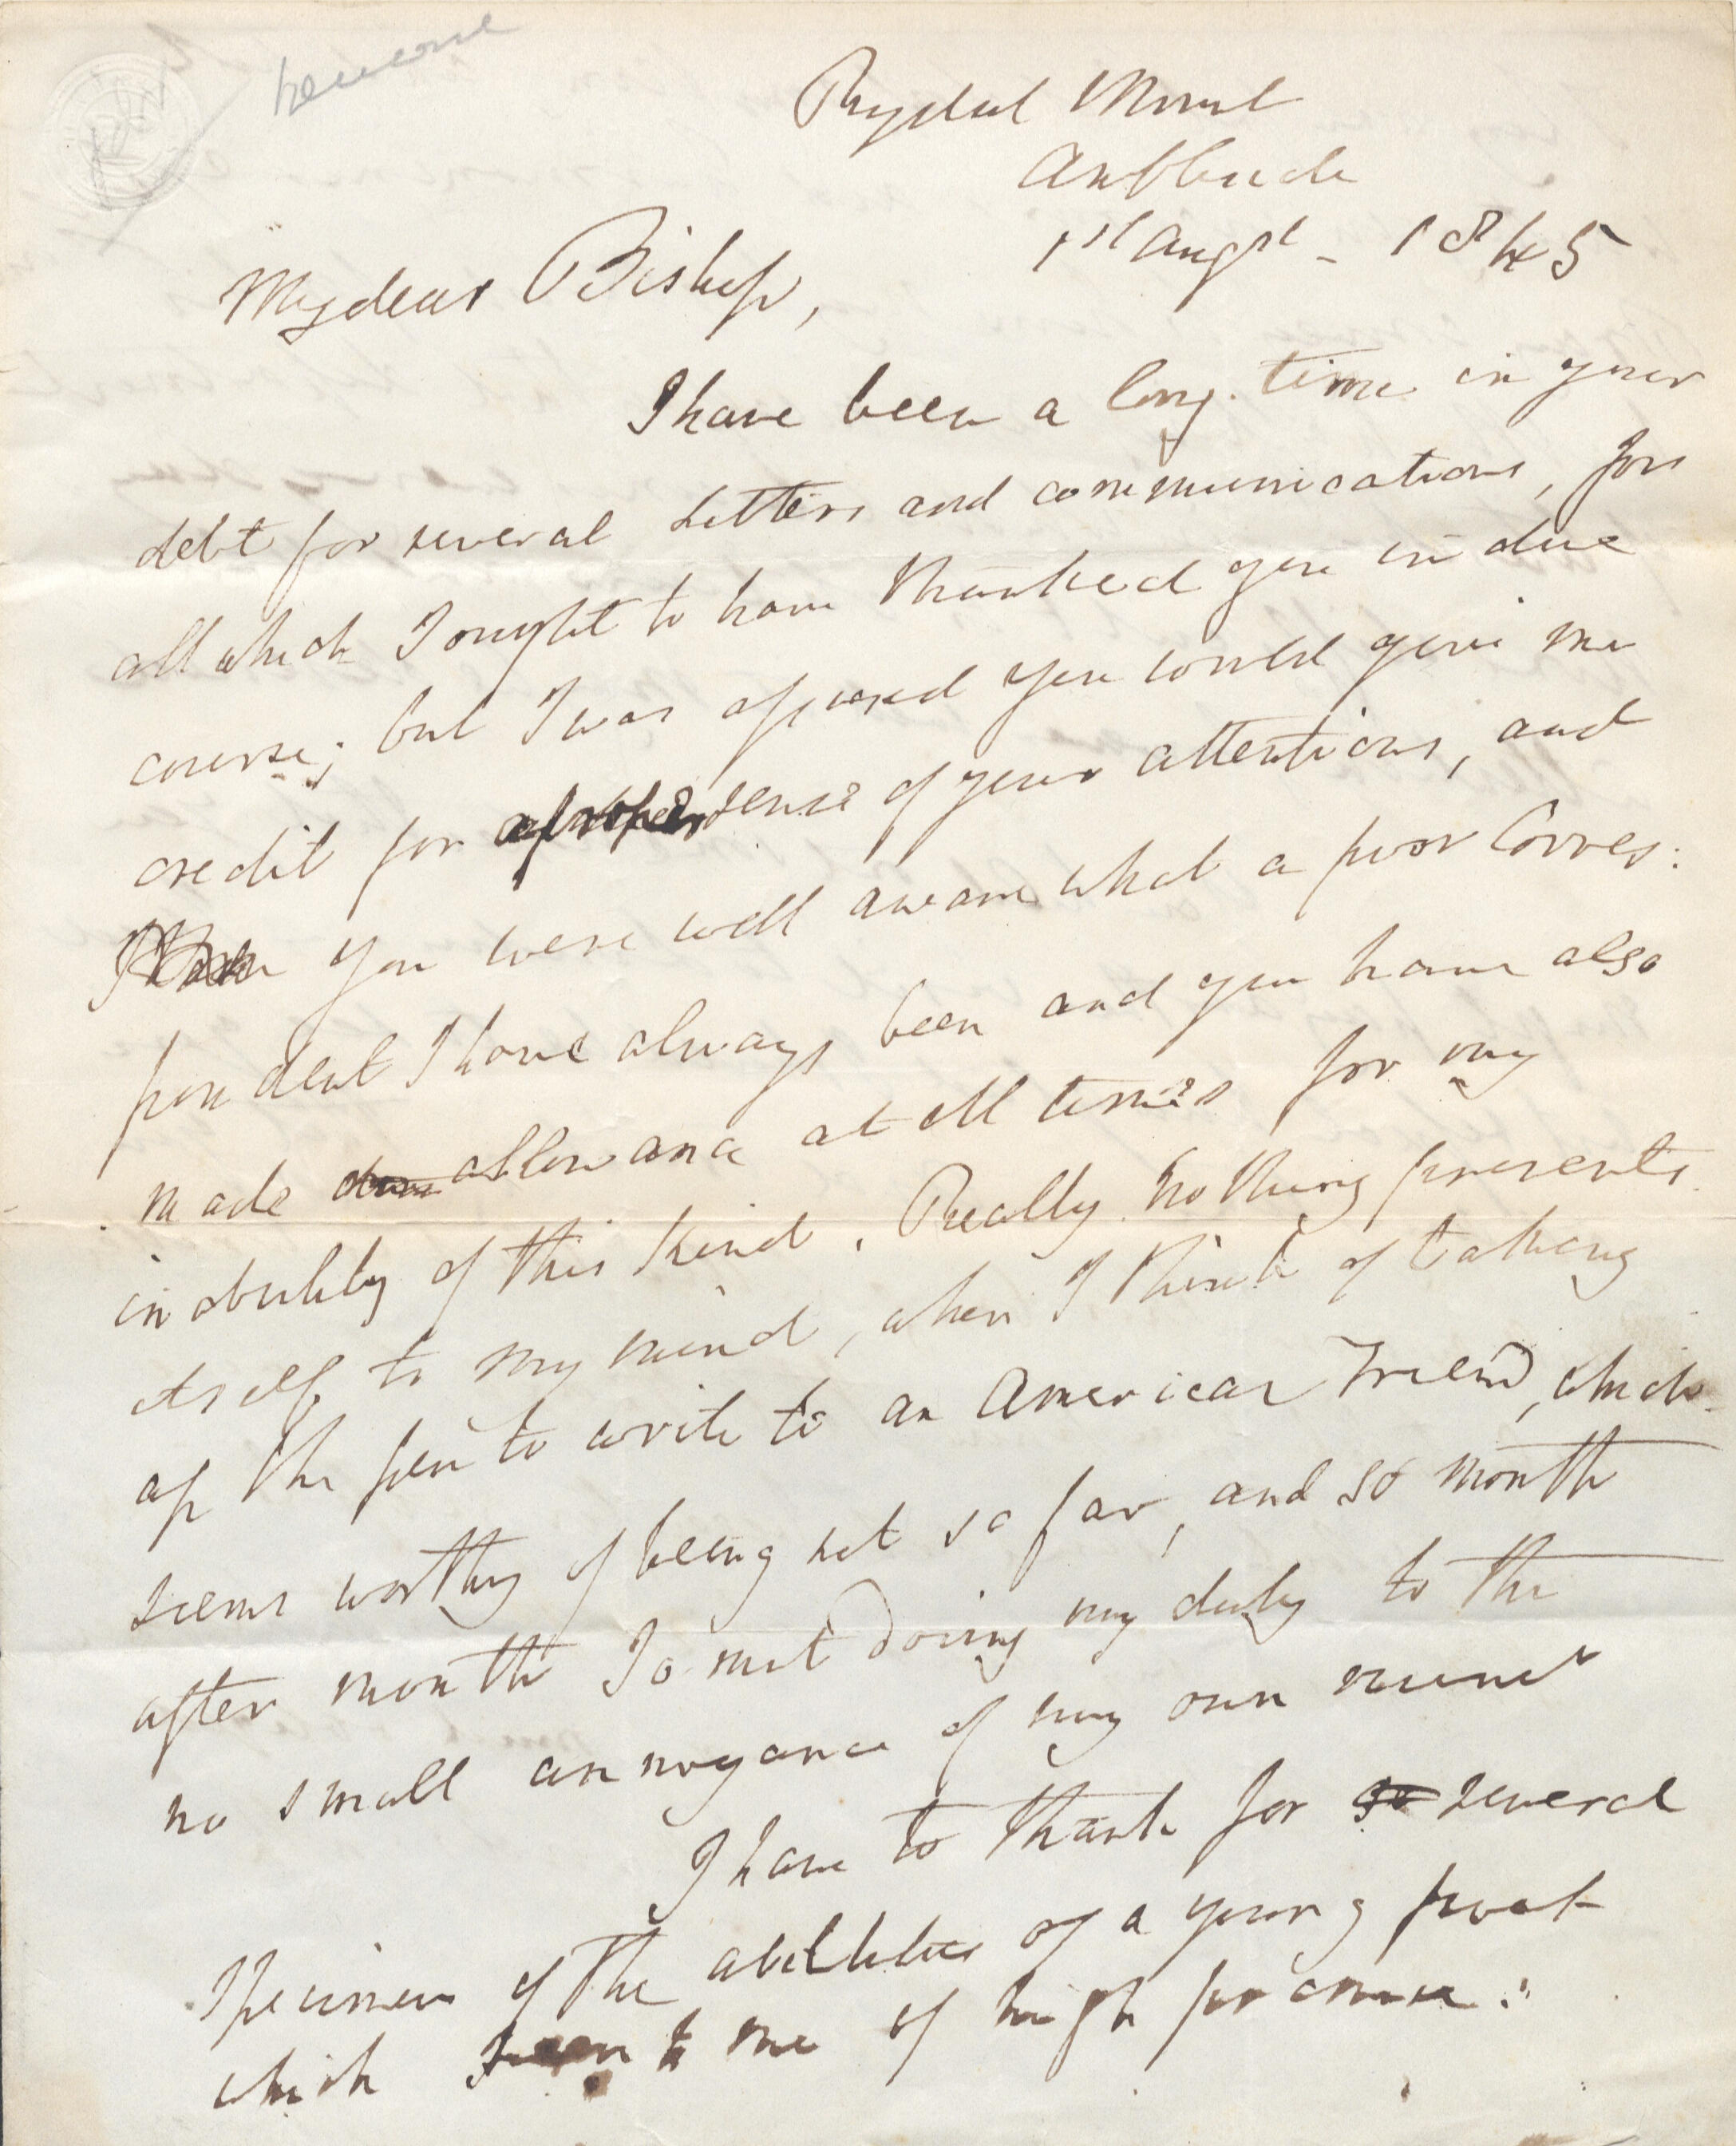 Rydal Mount
Ambleside
1st Augst - 1845
My dear Bishop,
I have been a long time in your
debt for several Letters and communications, for
all which I ought to have thanked you in due
course; but I was assured you would give me
credit for a proper sense of your attentions, and
you were well aware what a poor Corres:
pondent I have always been and you have also
made due allowance at all times for my
inability of this kind. Really nothing presents
itself to my mind, when I think of taking
up the pen to write to an American Friend, which
seems worthy of being sent so far, and so month
after month I omit doing my duty to the
no small annoyance of my own mind
I have to thank for so several
Specimens of the abilities of a young poet
which seem to me of high promise.